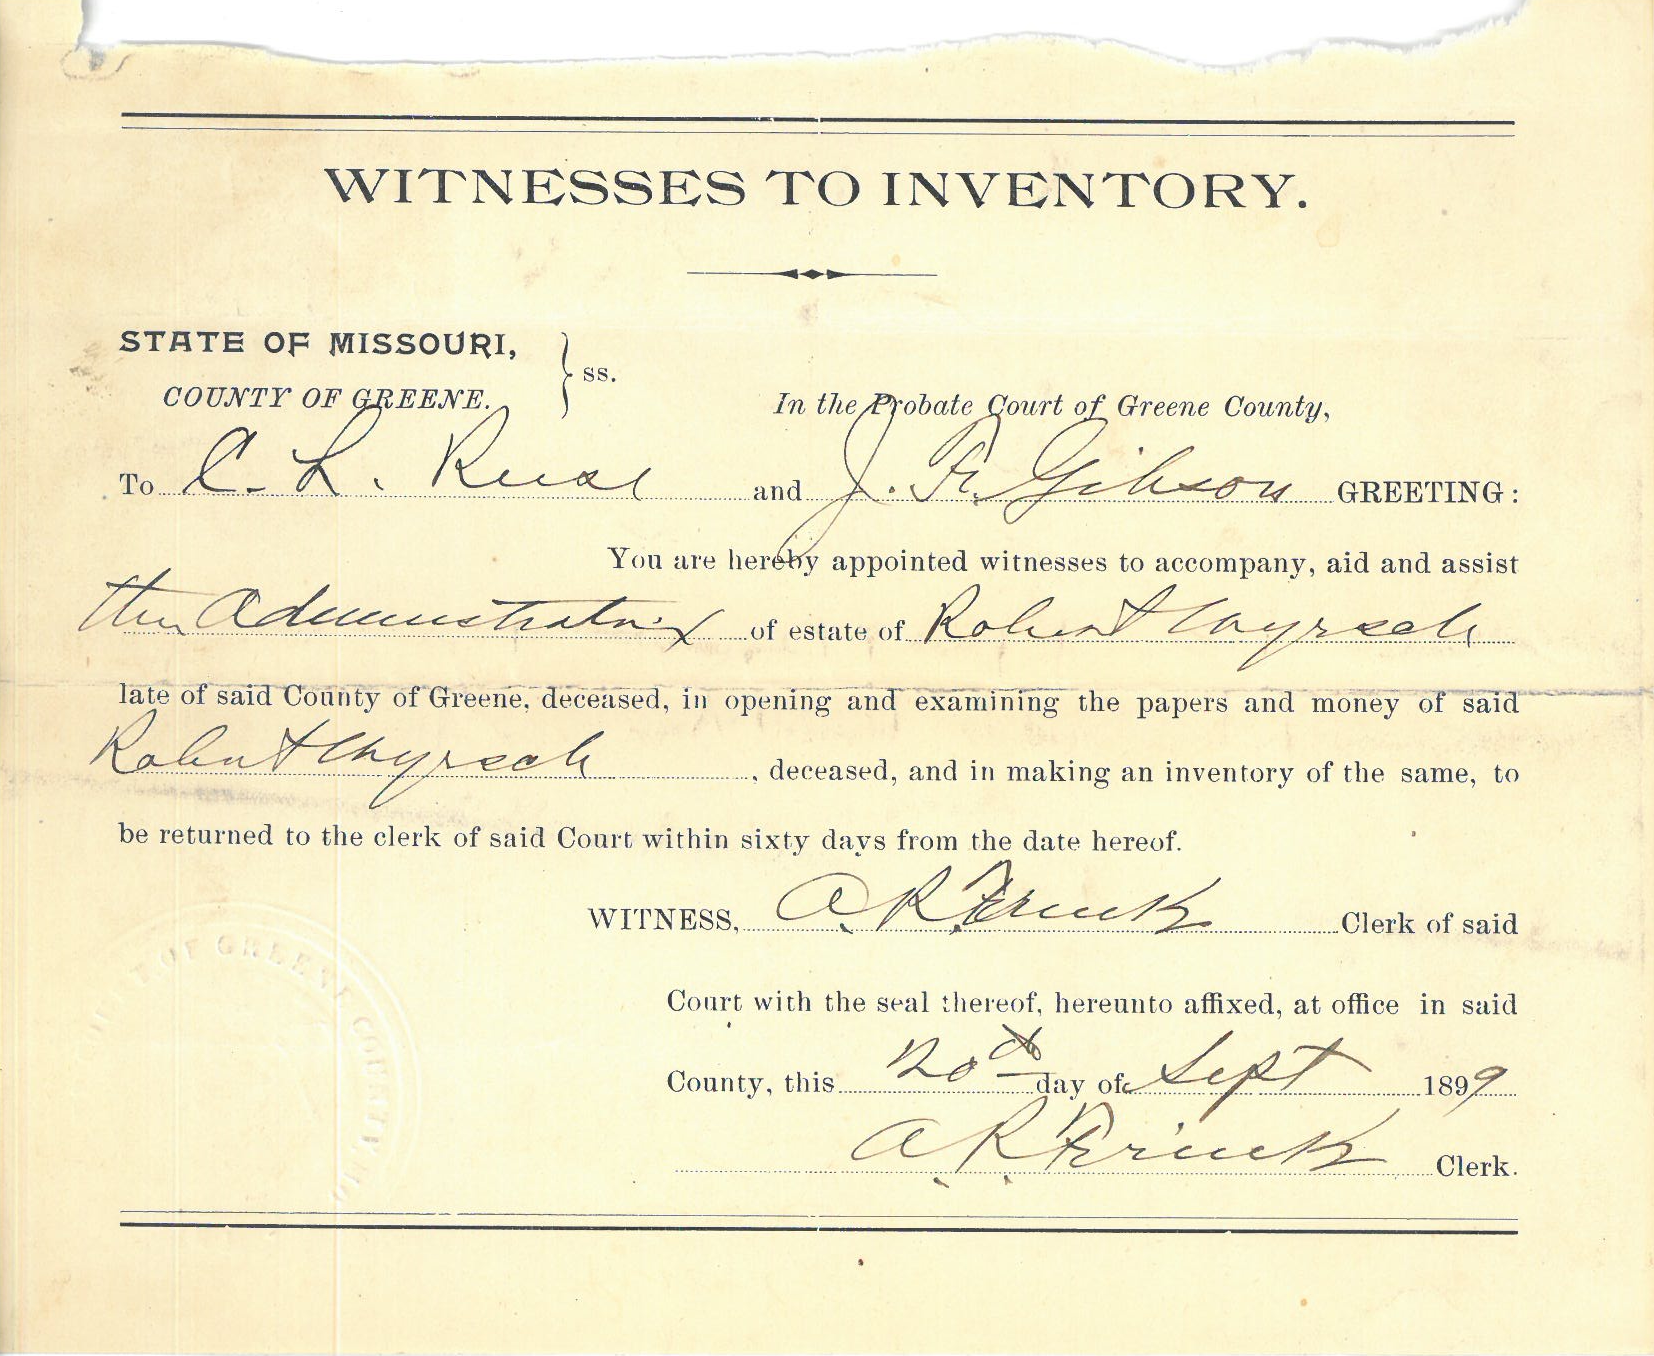 WITNESSES TO INVENTORY.
STATE OF MISSOURI,
COUNTY OF GREENE. } ss.
In the Probate Court of Greene County,
To C. L. and J. F. Gibson GREETING:
You are hereby appointed witnesses to accompany, aid and assist
the Administratrix of estate of Robert Wyrsch
late of said County of Greene, deceased, in opening and examining the papers and money of said
Robert Wyrsch, deceased, and in making an inventory of the same, to
be returned to the clerk of said Court within sixty days from the date hereof.
WITNESS, A. R. Clerk of said
Court with the seal thereof, hereunto affixed, at office in said
County, this 20th day of Sept 1899
A. R. Clerk.
OF GREENE COUNTY, MO